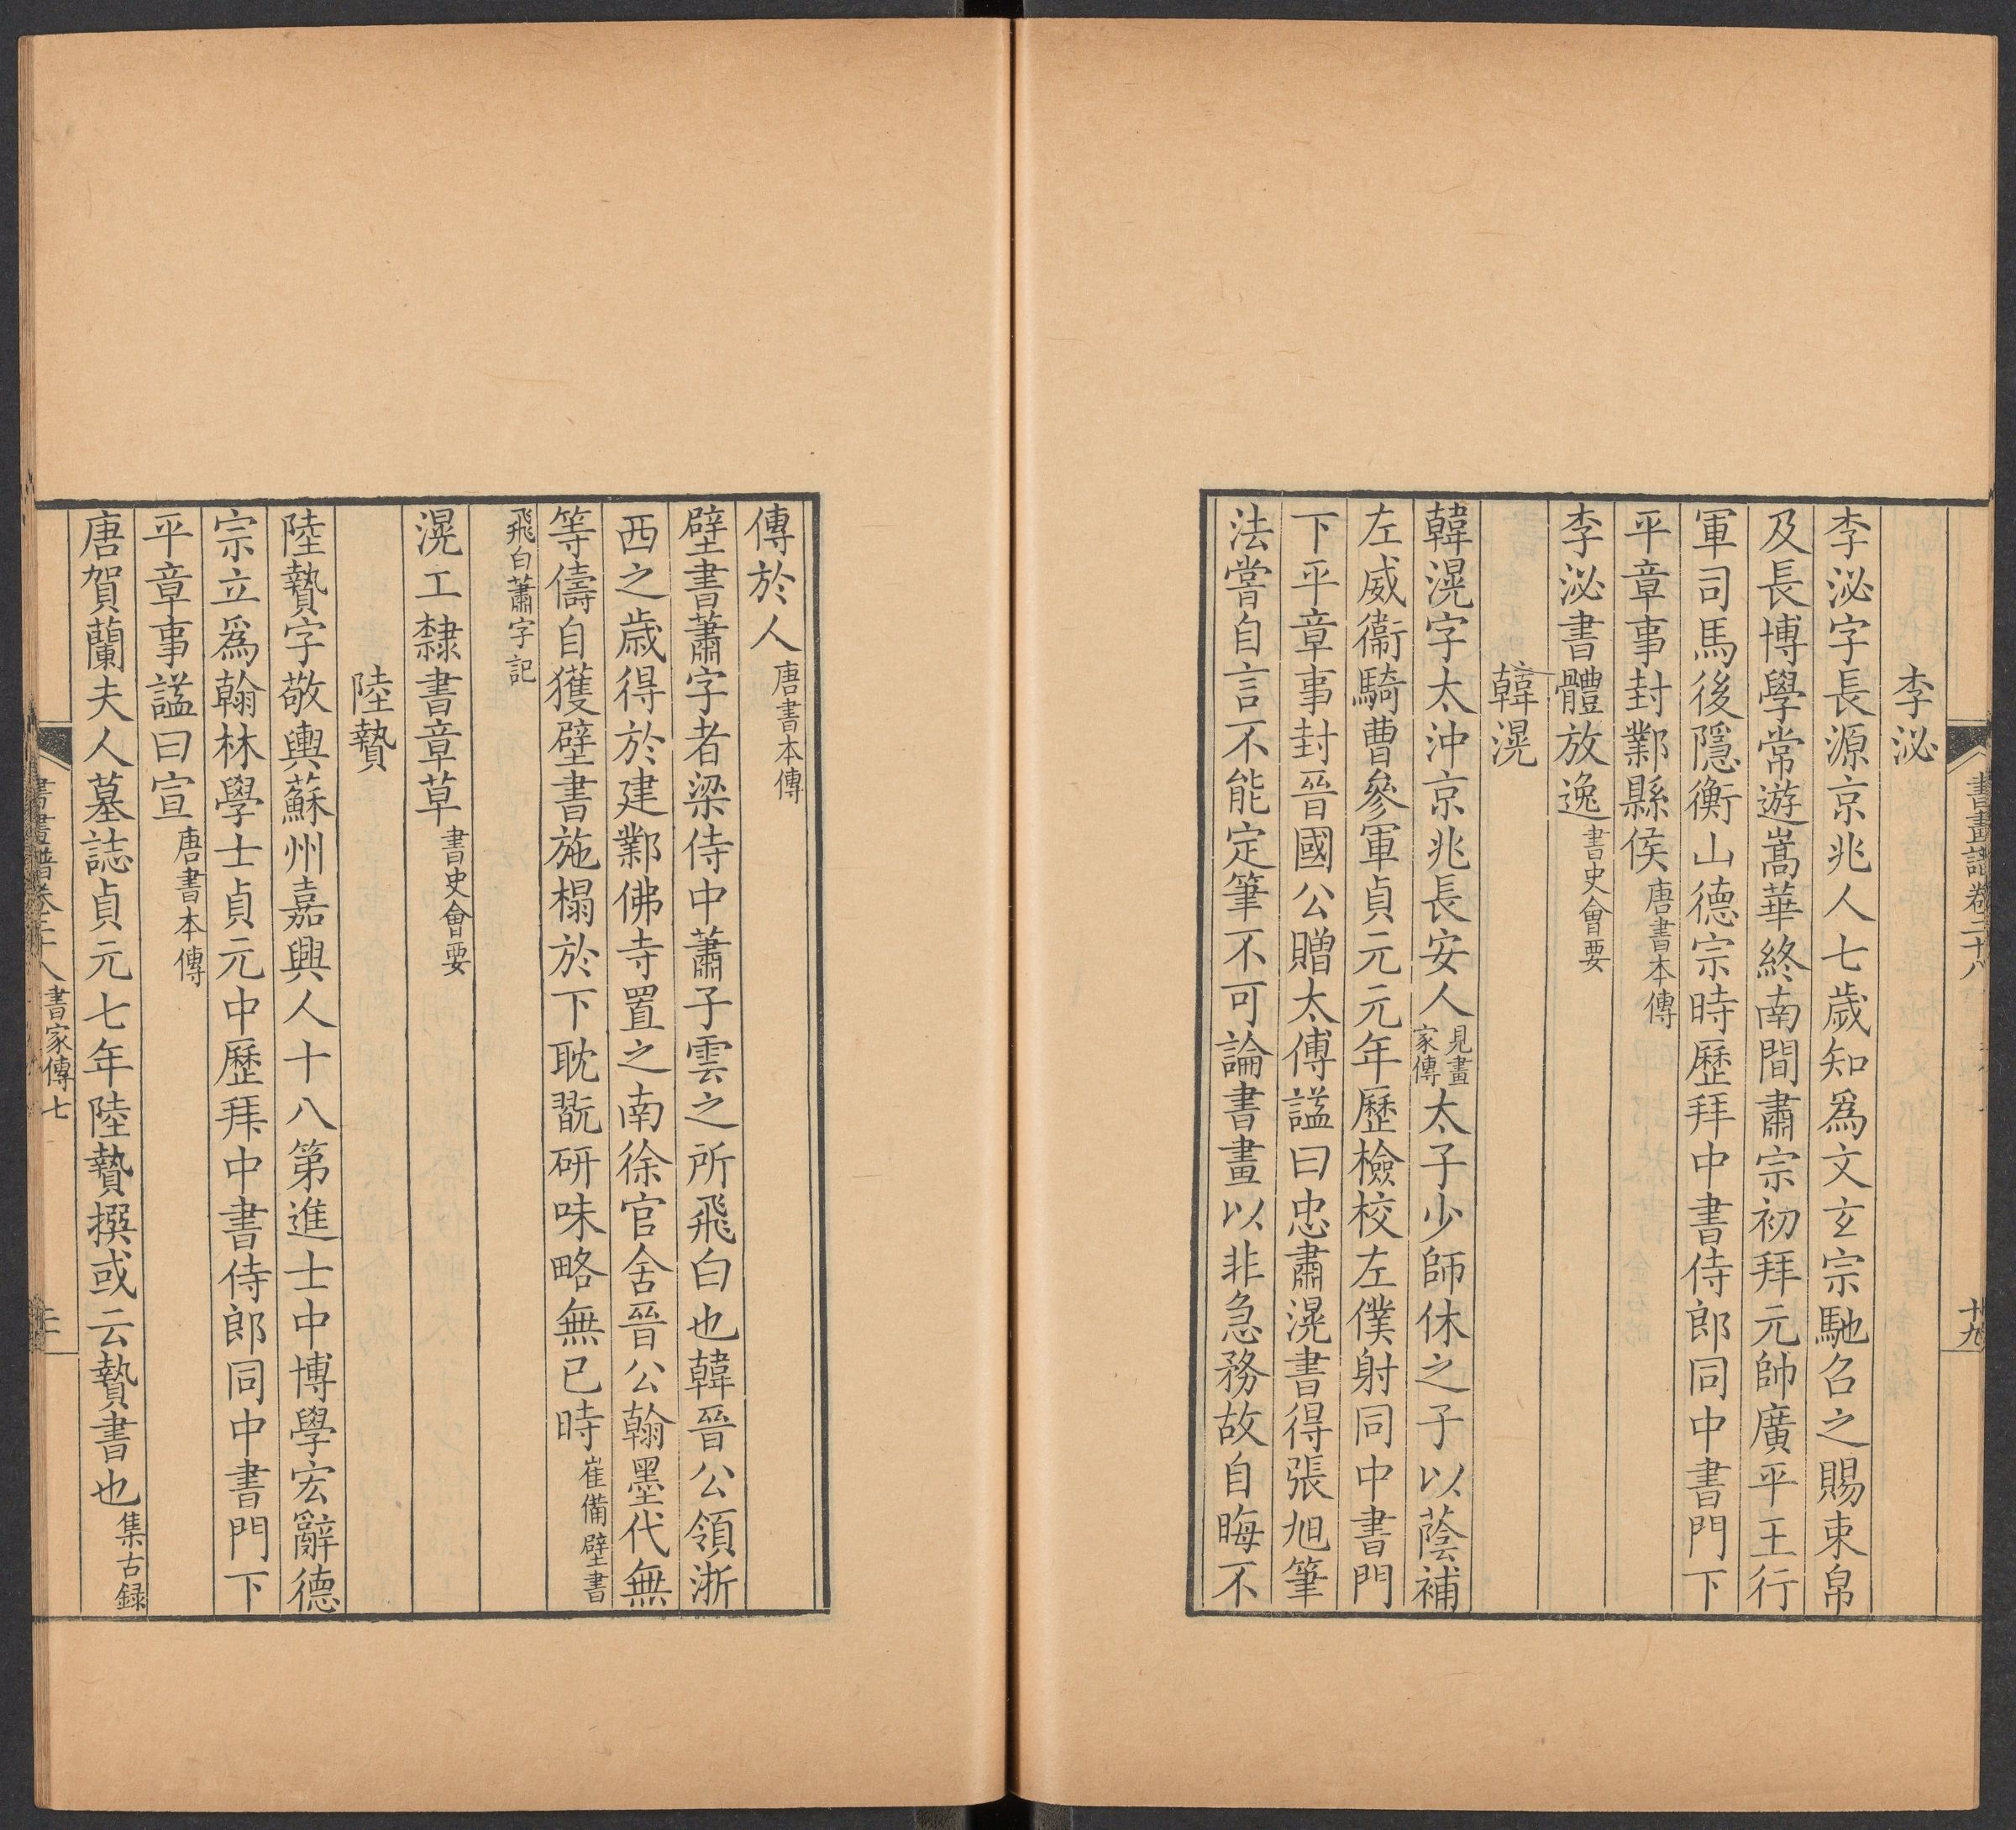 書畫譜卷二十八
十九
李泌
李泌字長源京兆人七歲知爲文玄宗馳召之賜束帛
及長博學常遊嵩華終南間肅宗初拜元帥廣平王行
軍司馬後隱衡山德宗時歷拜中書侍郎同中書門下
平章事封鄴縣侯唐書本傳
李泌書體放逸書史會要
韓滉
韓滉字太沖京兆長安人見畫家傳太子少師休之子以蔭補
左威衞騎曹參軍貞元元年歷檢校左僕射同中書門
下平章事封晉國公贈太傅諡曰忠肅滉書得張旭筆
法嘗自言不能定筆不可論書畫以非急務故自晦不
傳於人唐書本傳
壁書蕭字者梁侍中蕭子雲之所飛白也韓晉公領浙
西之歲得於建鄴佛寺置之南徐官舍晉公翰墨代無
等儔自獲壁書施榻於下耽翫研味略無已時崔備壁書
飛白蕭字記
滉工隸書章草書史會要
陸贄
陸贄字敬輿蘇州嘉興人十八第進士中博學宏辭德
宗立爲翰林學士貞元中歷拜中書侍郎同中書門下
平章事諡曰宣唐書本傳
唐賀蘭夫人墓誌貞元七年陸贄撰或云贄書也集古録
書畫譜卷二十八 書家傳七